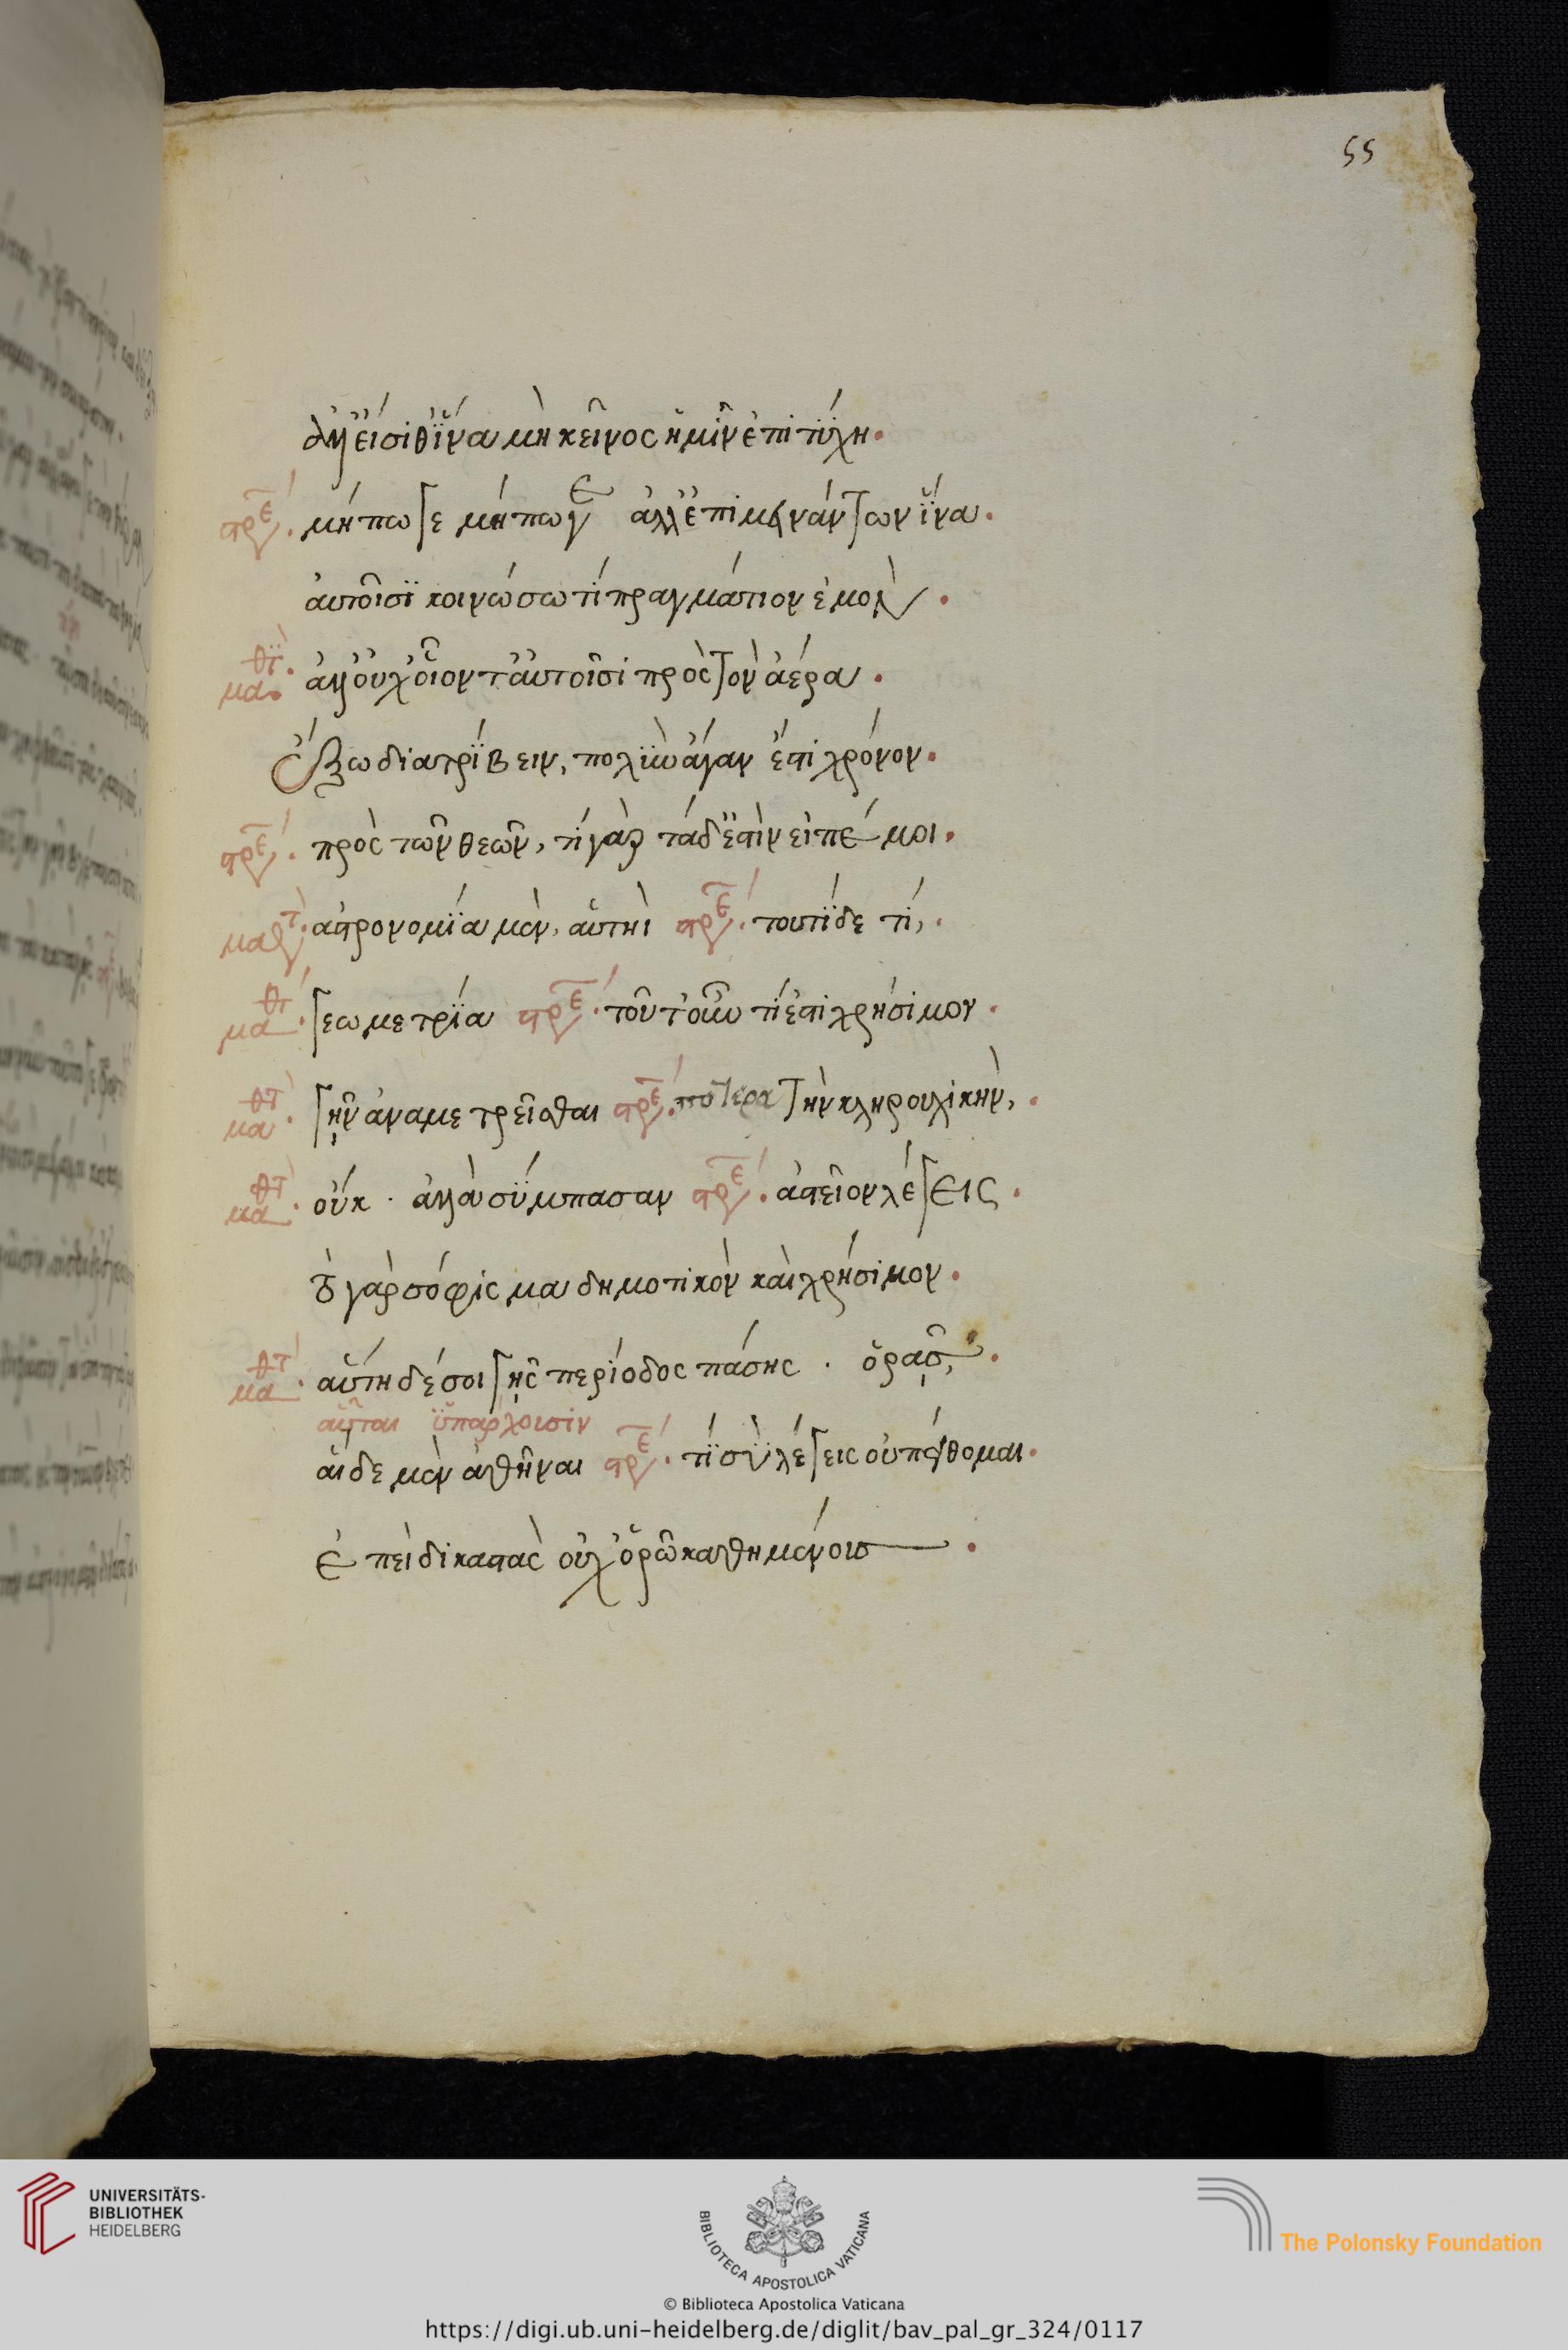 55
ἀλλ' εἴσιθ' ἵνα μὴ κεῖνος ἡμῖν ἐπιτύχη.
στρε. μήπωγε μήπωγε ἀλλ' ἐπιμεινάντων ἵνα.
αὐτοῖσι κοινώσω τί πραγμάτιον ἐμόν.
μαθτ. ἀλλ' οὐχ' οἷον τ' αὐτοῖσι πρὸς τὸν ἀέρα.
ἔξω διατρίβειν, πολὺν ἄγαν ἐστὶ χρόνον.
στρε. πρὸς τῶν θεῶν, τί γὰρ τάδ' ἐστὶν εἰπέ μοι.
μαθτ. ἀστρονομία μὲν, αὕτηὶ στρε. τουτὶ δε τί,.
μαθτ. γεωμετρία στρε. τοῦτ' οὖν τί ἐστι χρήσιμον.
μαθτ. γῆν ἀναμετρεῖσθαι στρε. πότερα τὴν κληρουχικὴν,.
μαθτ. οὔκ. ἀλλὰ σύμπασαν στρε. ἀστεῖον λέγεις.
τὸ γὰρ σόφισμα δημοτικὸν καὶ χρήσιμον.
μαθτ. αὕτη δέ σοι γῆς περίοδος πάσης. ὁρᾷς,.
αὗται ὑπάρχουσιν
αἵδε μὲν ἀθῆναι στρε. τί σὺ λέγεις οὐ πείθομαι.
ἐπεὶ δικαστὰς οὐχ' ὁρῶ καθημένους.
UNIVERSITÄTS-
BIBLIOTHEK
HEIDELBERG
BIBLIOTECA APOSTOLICA VATICANA
© Biblioteca Apostolica Vaticana
The Polonsky Foundation
https://digi.ub.uni-heidelberg.de/diglit/bav_pal_gr_324/0117